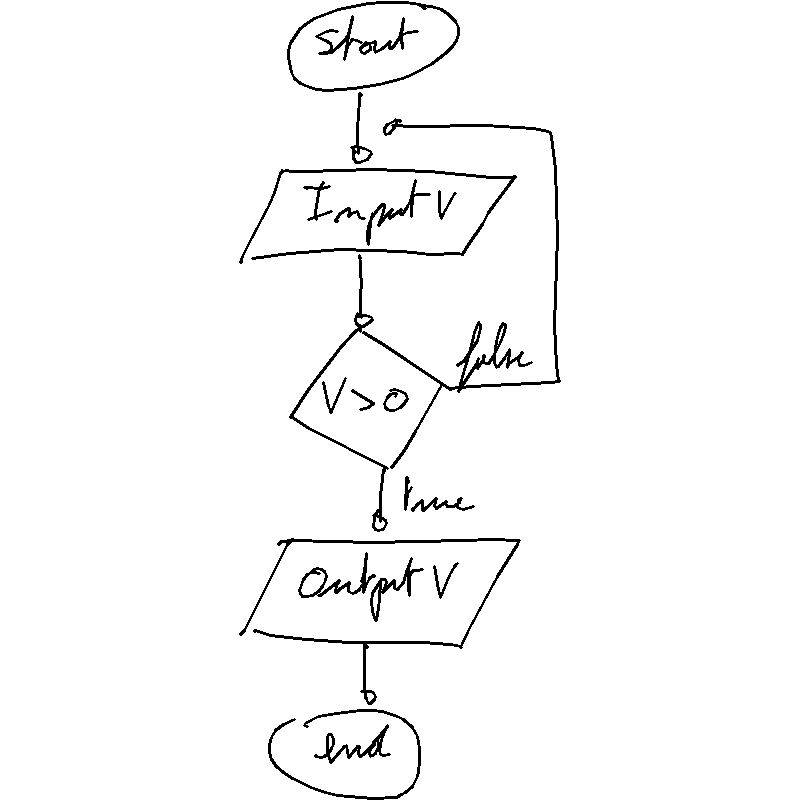 Start
Input V
V>0
false
true
Output V
end